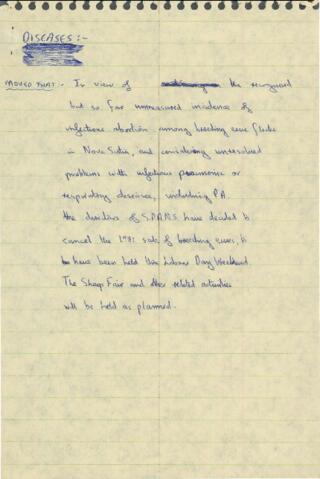 DISEASES :-
MOVED THAT - In view of the recognised
but so far unmeasured incidence of
infectious abortion among breeding ewe flocks
in Nova Scotia, and considering unresolved
problems with infectious pneumonia or
respiratory diseases, including P.A.
the directors of S.P.A.N.S. have decided to
cancel the 1981 sale of breeding ewes, to
have been held this Labour Day Weekend.
The Sheep Fair and other related activities
will be held as planned.